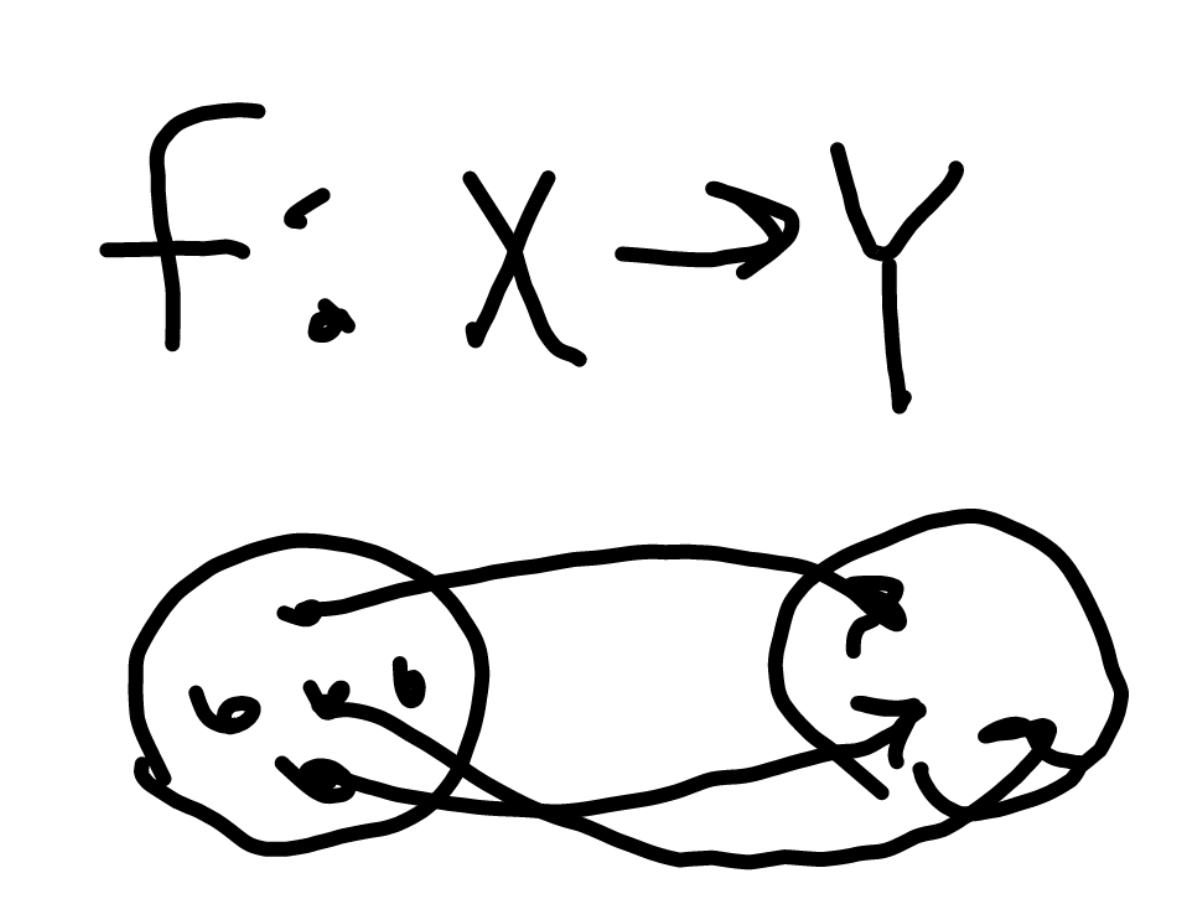 f: X → Y